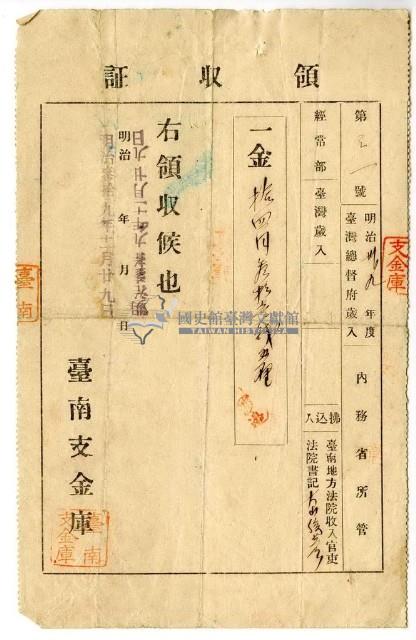 領收証
第 號 明治卅九年度 內務省所管
臺灣總督府歲入
經常部 臺灣歲入
拂込人 臺南地方法院收入官吏
法院書記
一金拾四円
右領收候也
明治參拾九年十一月廿九日
明治 年 月 日
明治參拾九年十一月廿九日
臺南支金庫
支金庫
臺南
臺南支金庫
國史館臺灣文獻館
TAIWAN HISTORICA